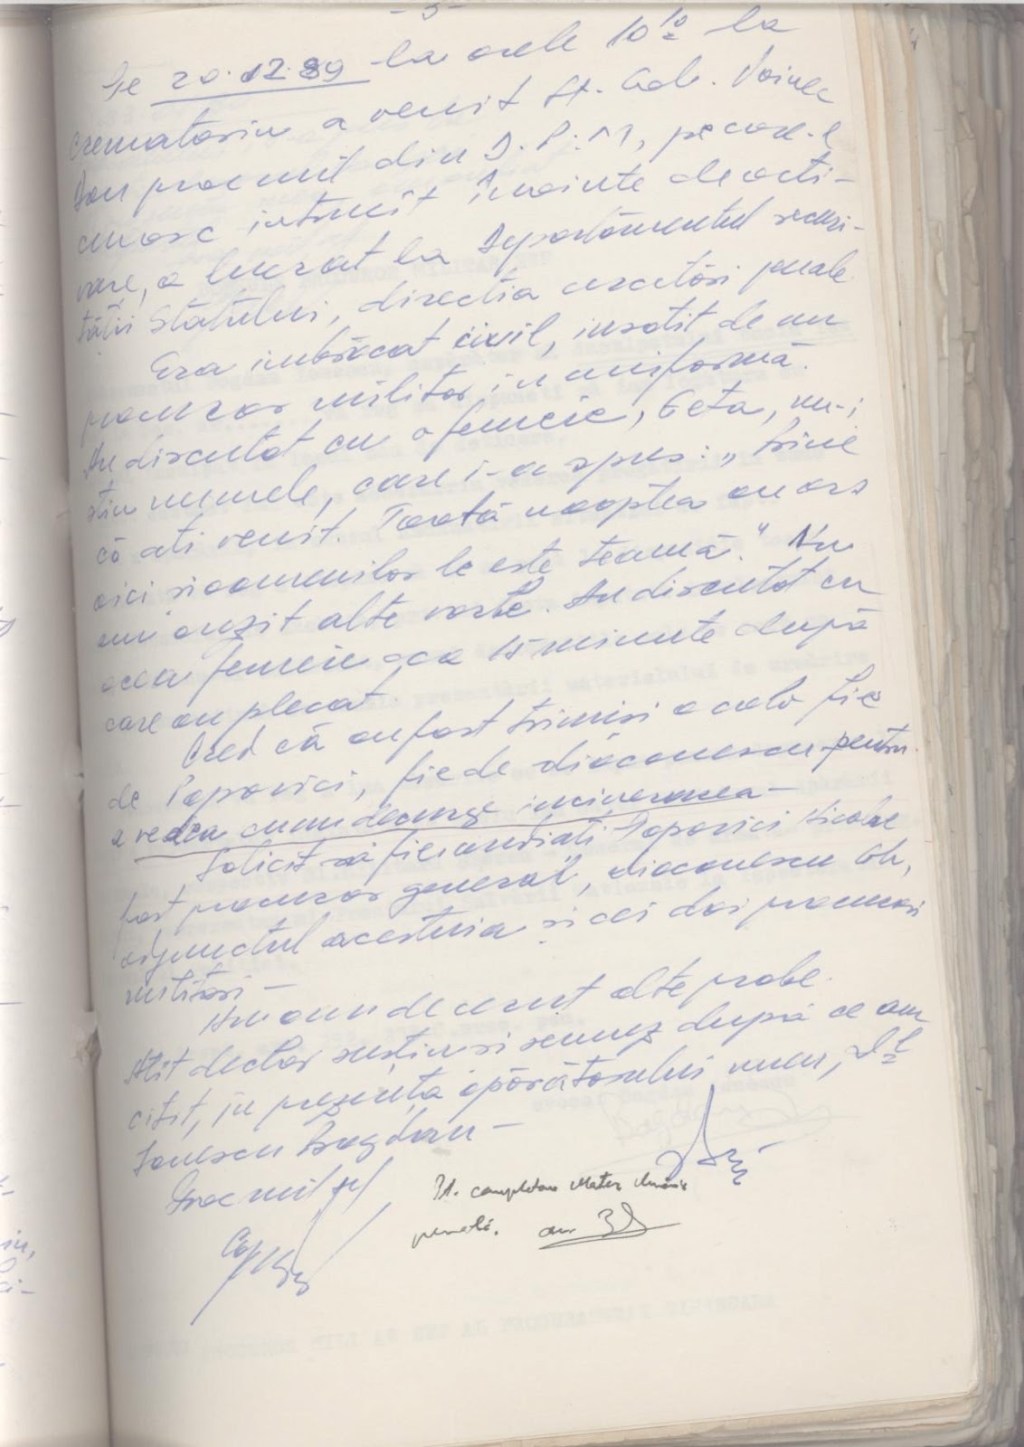 - 5 -
Pe 20.12.89 la orele 10¹⁰ la
crematoriu a venit lt. Gab. Voinea
proc mil din D.P.M, pe care-l
cunosc întrucît înainte de acti-
vare, a lucrat la Departamentul securi-
tății Statului, direcția cercetări penale.
Era îmbrăcat civil, însoțit de un
procuror militar in uniformă.
Au discutat cu o femeie, Geta, nu-i
știu numele, care i-a spus: „bine
că ati venit. Toată noaptea au ars
aici și oamenilor le este teamă." Nu
am auzit alte vorbe. Au discutat cu
acea femeie cca 15 minute după
care au plecat.
Cred că au fost trimisi acolo fie
de Popovici, fie de diaconescu pentru
a vedea cum decurge incinerarea -
Solicit să fie audiati Popovici Nicolae
fost procuror general, diaconescu Gh,
adjunctul acestuia si cei doi procurori
militari -
Nu am de cerut alte probe.
Atit declar susțin si semnez după ce am
citit, în prezența apărătorului meu, dl
Ionescu Bogdan -
Proc mil șef
penală.